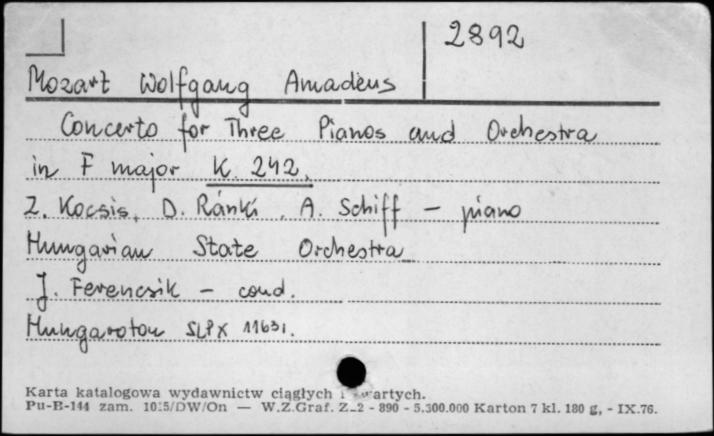 2892
Mozart Wolfgang Amadeus
Concerto for Three Pianos and Orchestra
in F major K. 242.
Z. Kocsis, D. Ránki, A. Schiff - piano
Hungarian State Orchestra
J. Ferencsik - cond.
Hungaroton SLPX 11631.
Karta katalogowa wydawnictw ciągłych i
Pu-B-144 zam. 1015/DW/On — W.Z.Graf. Z-2 - 890 - 5.300.000 Karton 7 kl. 180 g, - IX.76.